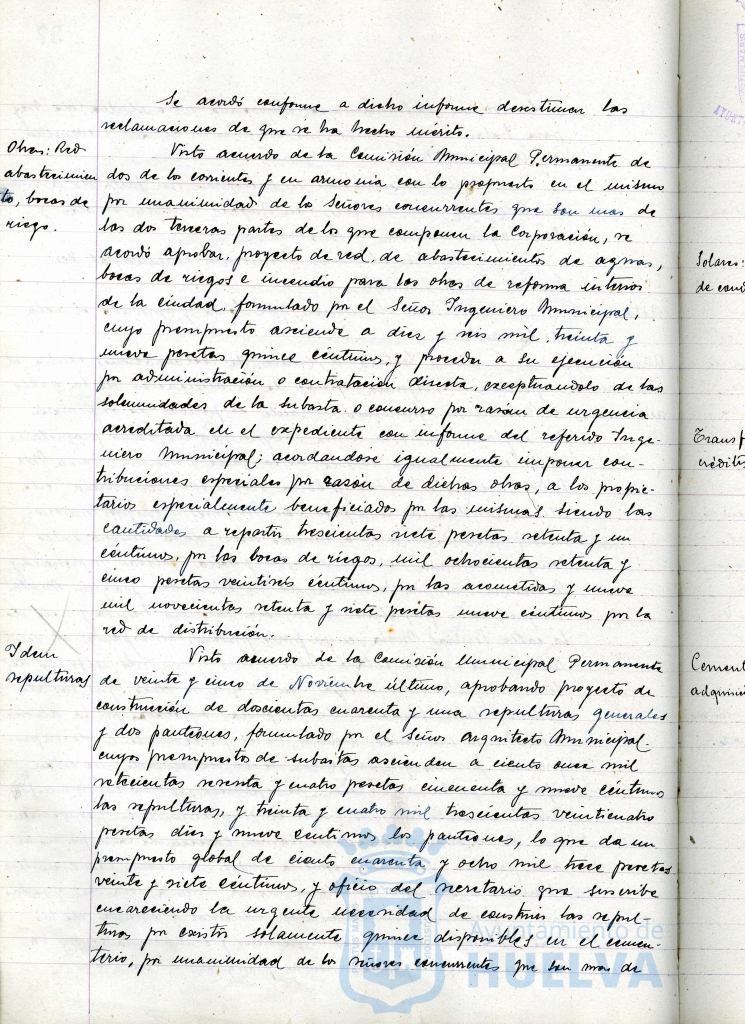 Se acordó conforme a dicho informe desestimar las
reclamaciones de que se ha hecho mérito.
Obras: Red
abastecimien
to, bocas de
riego.
Visto acuerdo de la Comisión Municipal Permanente de
dos de los corrientes y en armonia con lo propuesto en el mismo
por unanimidad de los Señores concurrentes que son mas de
las dos terceras partes de los que componen la Corporación, se
acordó aprobar, proyecto de red, de abastecimientos de aguas,
bocas de riegos e incendio para las obras de reforma interior
de la ciudad, formulado por el Señor Ingeniero Municipal,
cuyo presupuesto asciende a diez y seis mil, treinta y
nueve pesetas quince céntimos, y proceder a su ejecución
por administración o contratación directa, exceptuandolo de las
solemnidades de la subasta o concurso por razón de urgencia
acreditada en el expediente con informe del referido Inge-
niero Municipal; acordandose igualmente imponer con-
tribuciones especiales por razón de dichas obras, a los propie-
tarios especialmente beneficiados por las mismas siendo las
cantidades a repartir trescientas siete pesetas setenta y un
céntimos, por las bocas de riegos, mil ochocientas setenta y
cinco pesetas veintiseis céntimos, por las acometidas y nueve
mil novecientas setenta y siete pesetas nueve céntimos por la
red de distribución.
Idem
sepulturas
Visto acuerdo de la Comisión Municipal Permanente
de veinte y cinco de Noviembre último, aprobando proyecto de
construcción de doscientas cuarenta y una sepulturas generales
y dos panteones, formulado por el Señor Arquitecto Municipal.
cuyos presupuestos de subastas ascienden a ciento once mil
setecientas sesenta y cuatro pesetas cincuenta y nueve céntimos
las sepulturas, y treinta y cuatro mil trescientas veinticuatro
pesetas diez y nueve centimos los panteones, lo que da un
presupuesto global de ciento cuarenta y ocho mil trece pesetas
veinte y siete céntimos, y oficio del secretario que suscribe
encareciendo la urgente necesidad de construir las sepul-
turas por existir solamente quince disponibles en el cemen-
terio, por unanimidad de los señores concurrentes que son mas de
Solares:
de
Transf
crédito
Cement
adquisi
Ayuntamiento de
HUELVA